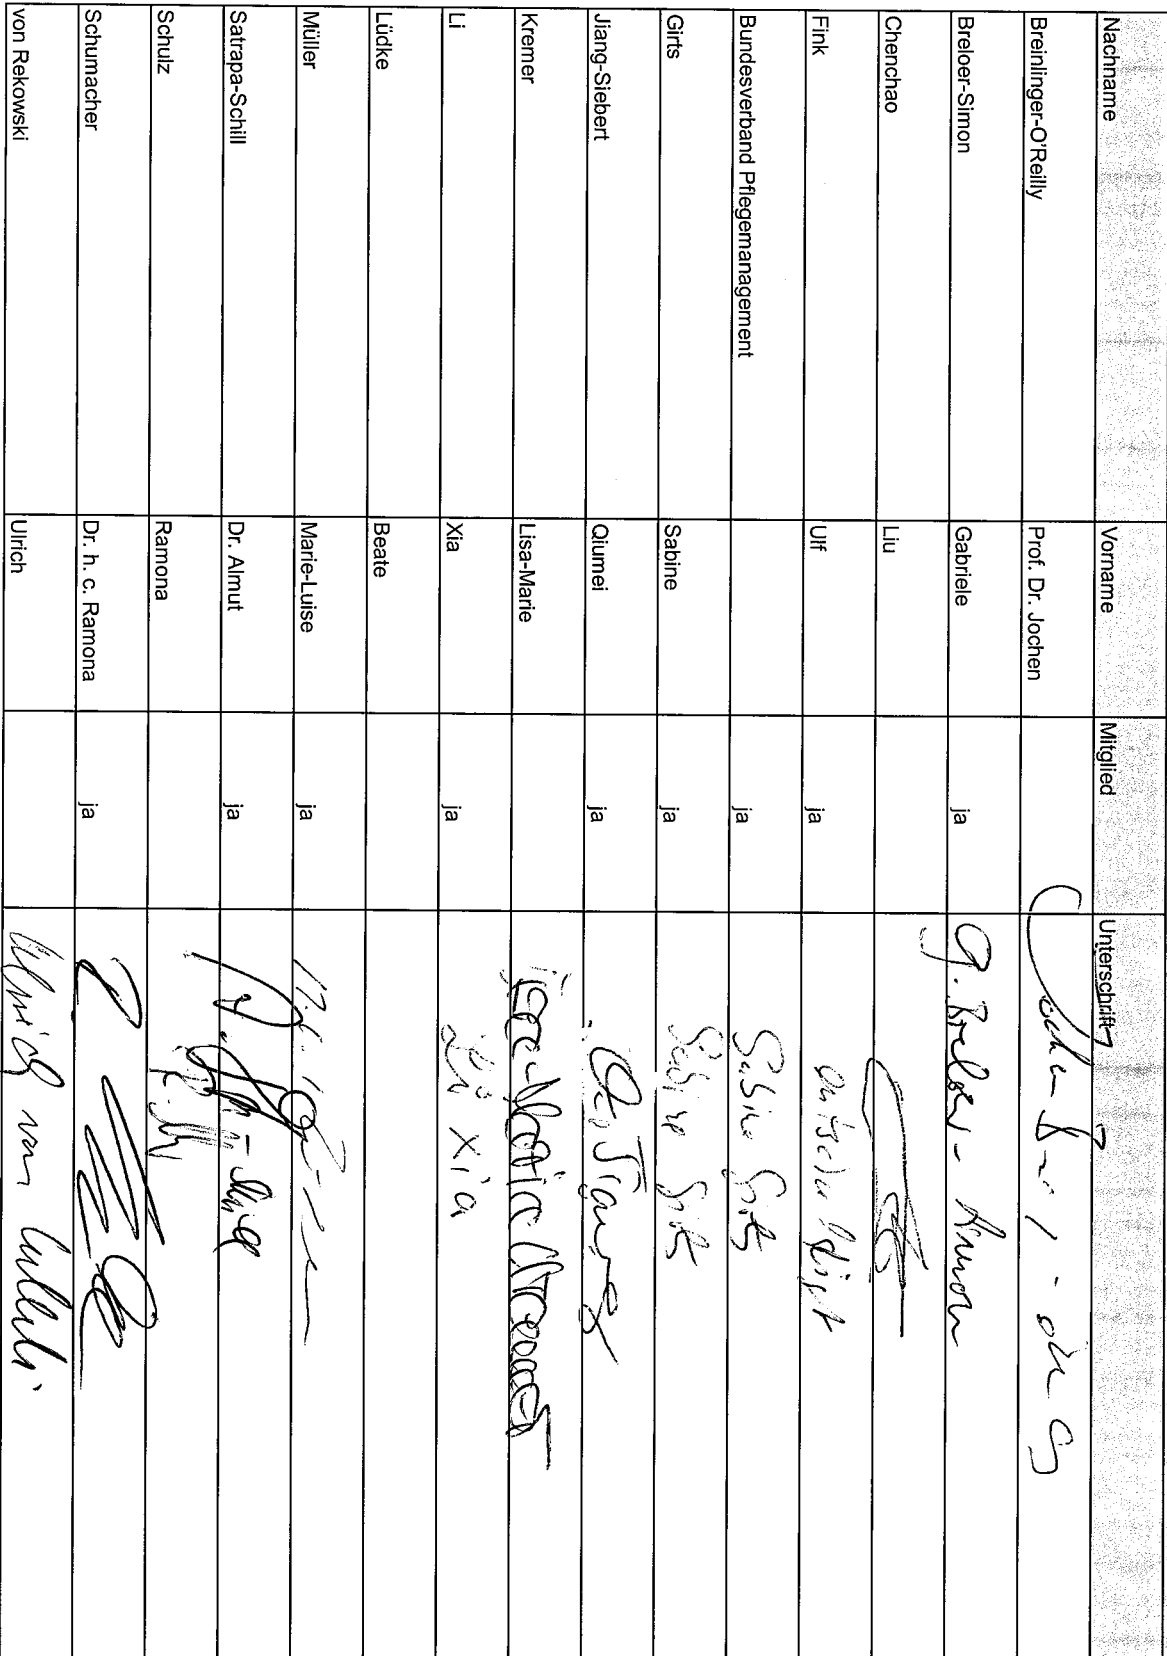 Nachname Vorname Mitglied Unterschrift
Breinlinger-O'Reilly Prof. Dr. Jochen
Breloer-Simon Gabriele ja G. Breloer-Simon
Chenchao Liu
Fink Ulf ja entschuldigt
Bundesverband Pflegemanagement ja Sabine Girts
Girts Sabine ja Sabine Girts
Jiang-Siebert Qiumei ja Jiang
Kremer Lisa-Marie Lisa-Marie Kremer
Li Xia ja Li Xia
Lüdke Beate
Müller Marie-Luise ja
Satrapa-Schill Dr. Almut ja
Schulz Ramona
Schumacher Dr. h. c. Ramona ja
von Rekowski Ulrich Ulrich von